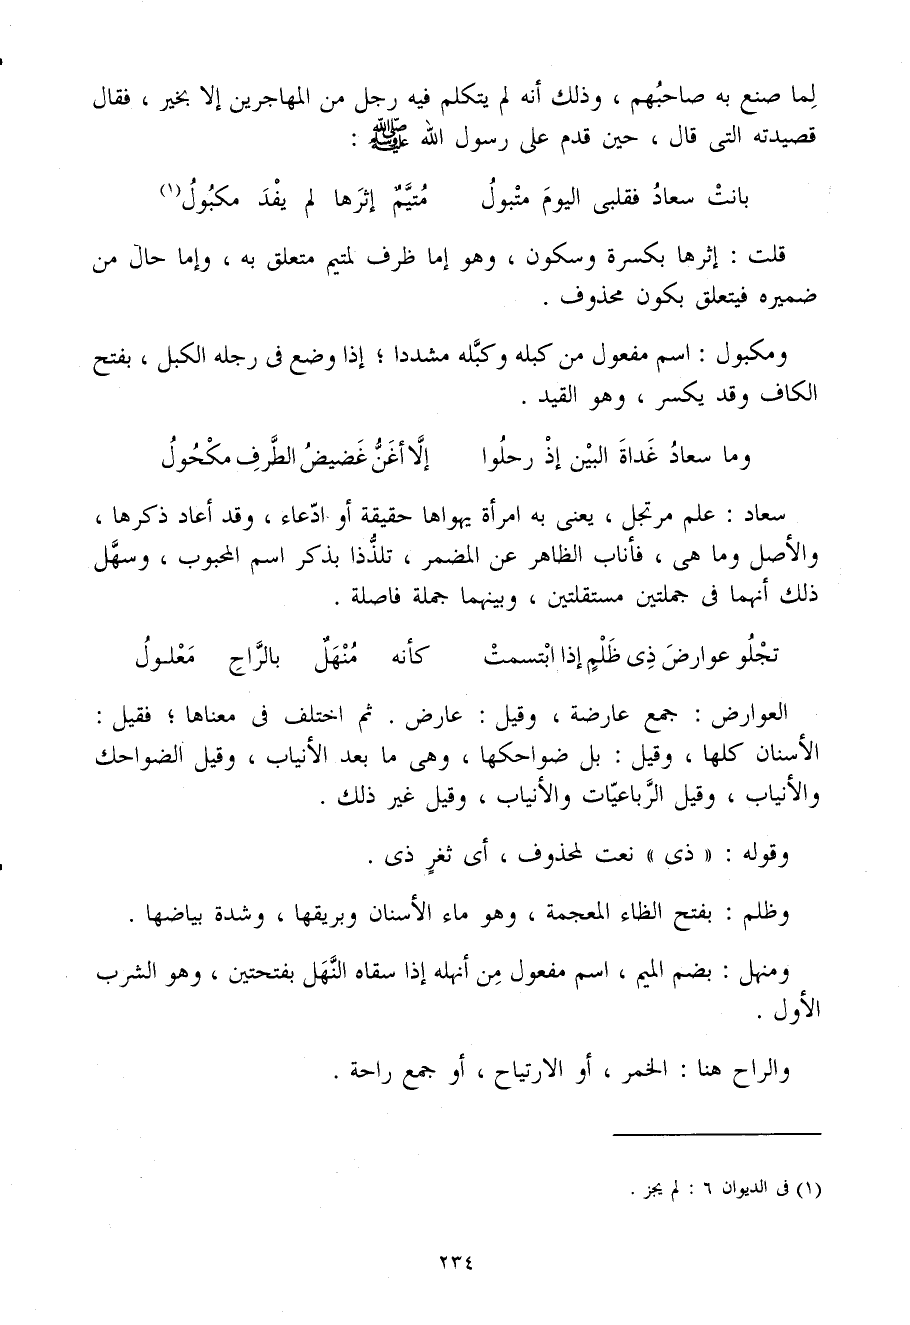 لِما صنع به صاحبُهم ، وذلك أنه لم يتكلم فيه رجل من المهاجرين إلا بخير ، فقال
قصيدته التى قال ، حين قدم على رسول الله ﷺ :
بانتْ سعادُ فقلبى اليومَ متْبولُ متُيَّمٌ إثرَها لم يفْدَ مكبُولُ(١)
قلت : إثرها بكسرة وسكون ، وهو إما ظرف لمتيم متعلق به ، وإما حال من
ضميره فيتعلق بكون محذوف .
ومكبول : اسم مفعول من كبله وكبَّله مشددا ؛ إذا وضع فى رجله الكبل ، بفتح
الكاف وقد يكسر ، وهو القيد .
وما سعادُ غَداةَ البيْن إذْ رحلُوا إلَّا أغَنُّ غَضيضُ الطَّرفِ مكْحُولُ
سعاد : علم مرتجل ، يعنى به امرأة يهواها حقيقة أو ادّعاء ، وقد أعاد ذكرها ،
والأصل وما هى ، فأناب الظاهر عن المضمر ، تلذُّذا بذكر اسم المحبوب ، وسهَّل
ذلك أنهما فى جملتين مستقلتين ، وبينهما جملة فاصلة .
تجْلُو عوارضَ ذِى ظَلْمٍ إذا ابْتسمتْ كأنه مُنْهَلٌ بالرَّاحِ مَعْلولُ
العوارض : جمع عارضة ، وقيل : عارض . ثم اختلف فى معناها ؛ فقيل :
الأسنان كلها ، وقيل : بل ضواحكها ، وهى ما بعد الأنياب ، وقيل الضواحك
والأنياب ، وقيل الرَّباعيّات والأنياب ، وقيل غير ذلك .
وقوله : « ذى » نعت لمحذوف ، أى ثغرٍ ذى .
وظلم : بفتح الظاء المعجمة ، وهو ماء الأسنان وبريقها ، وشدة بياضها .
ومنهل : بضم الميم ، اسم مفعول مِن أنهله إذا سقاه النَّهَل بفتحتين ، وهو الشرب
الأول .
والراح هنا : الخمر ، أو الارتياح ، أو جمع راحة .
(١) فى الديوان ٦ : لم يجز .
٢٣٤